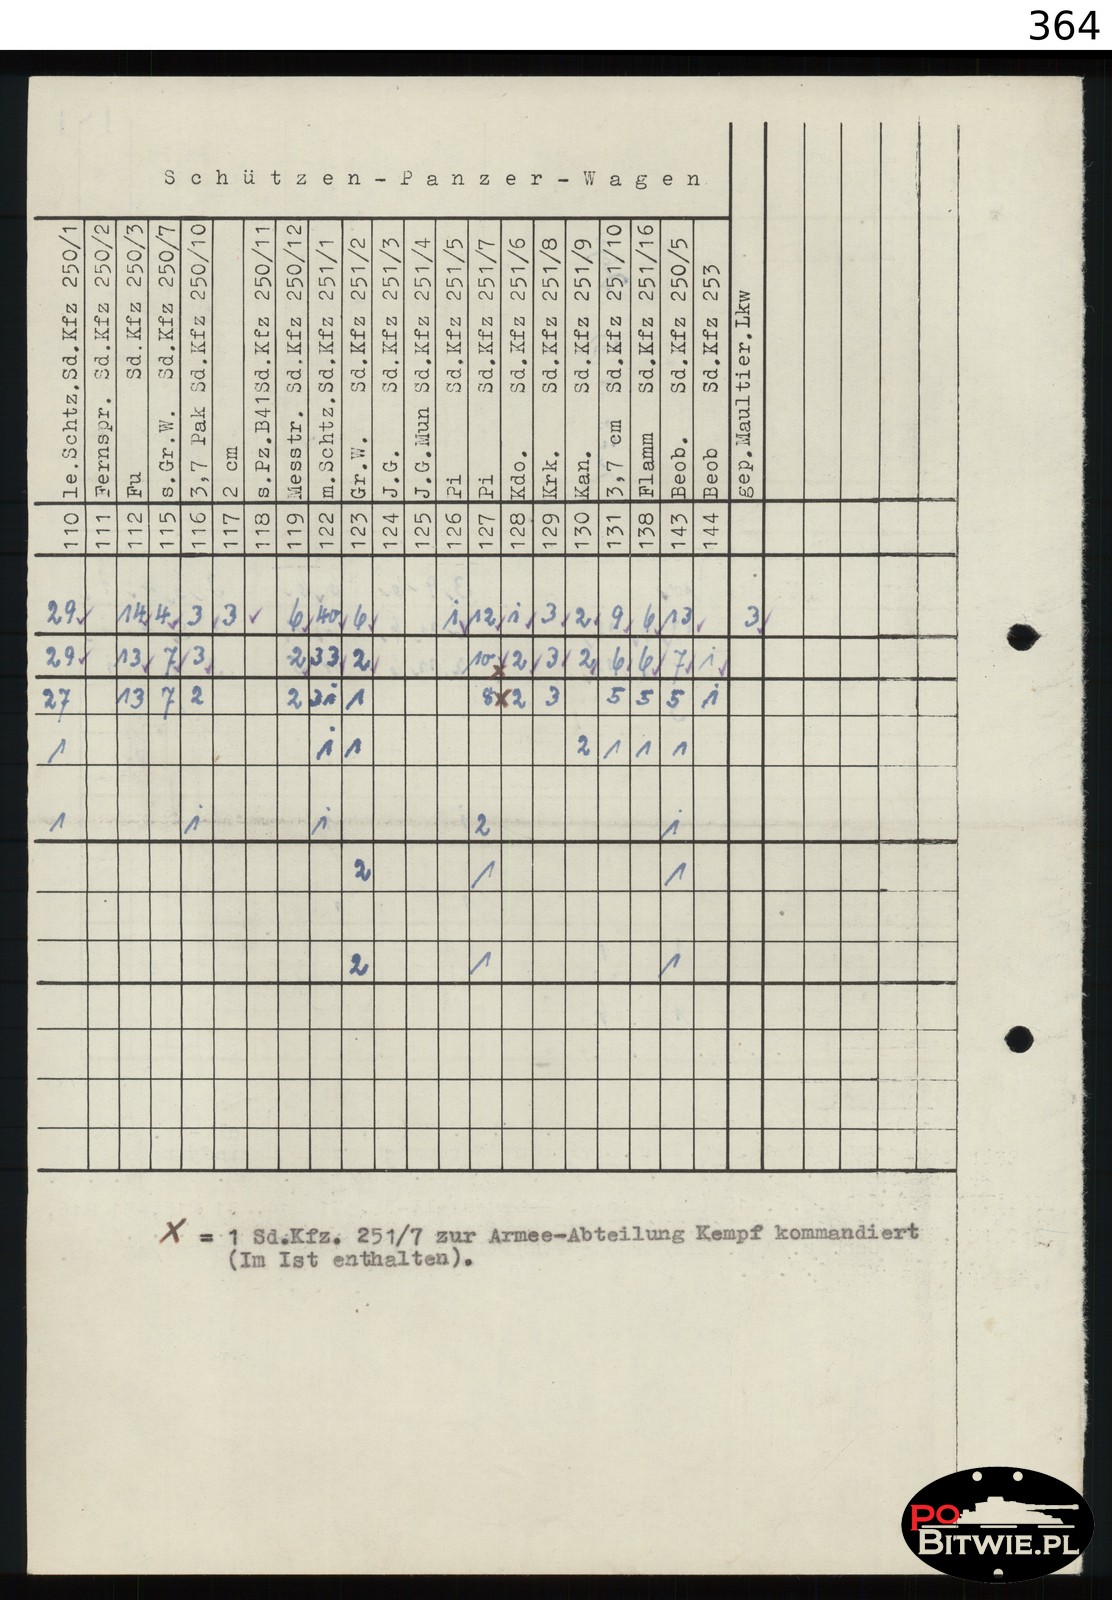 364
Schützen-Panzer-Wagen
le.Schtz.Sd.Kfz 250/1
Fernspr. Sd.Kfz 250/2
Fu Sd.Kfz 250/3
s.Gr.W. Sd.Kfz 250/7
3,7 Pak Sd.Kfz 250/10
2 cm
s.Pz.B41Sd.Kfz 250/11
Messtr. Sd.Kfz 250/12
m.Schtz.Sd.Kfz 251/1
Gr.W. Sd.Kfz 251/2
J.G. Sd.Kfz 251/3
J.G.Mun Sd.Kfz 251/4
Pi Sd.Kfz 251/5
Pi Sd.Kfz 251/7
Kdo. Sd.Kfz 251/6
Krk. Sd.Kfz 251/8
Kan. Sd.Kfz 251/9
3,7 cm Sd.Kfz 251/10
Flamm Sd.Kfz 251/16
Beob. Sd.Kfz 250/5
Beob Sd.Kfz 253
gep.Maultier.Lkw
110 111 112 115 116 117 118 119 122 123 124 125 126 127 128 129 130 131 138 143 144
29 14 4 3 3 6 40 6 1 12 1 3 2 9 6 13 3
29 13 7 3 2 33 2 10 x 2 3 2 6 6 7 1
27 13 7 2 2 31 1 8 x 2 3 5 5 5 1
1 1 1 2 1 1 1
1 1 1 2 1
2 1 1
2 1 1
X = 1 Sd.Kfz. 251/7 zur Armee-Abteilung Kempf kommandiert
(Im Ist enthalten).
PO
BITWIE.PL